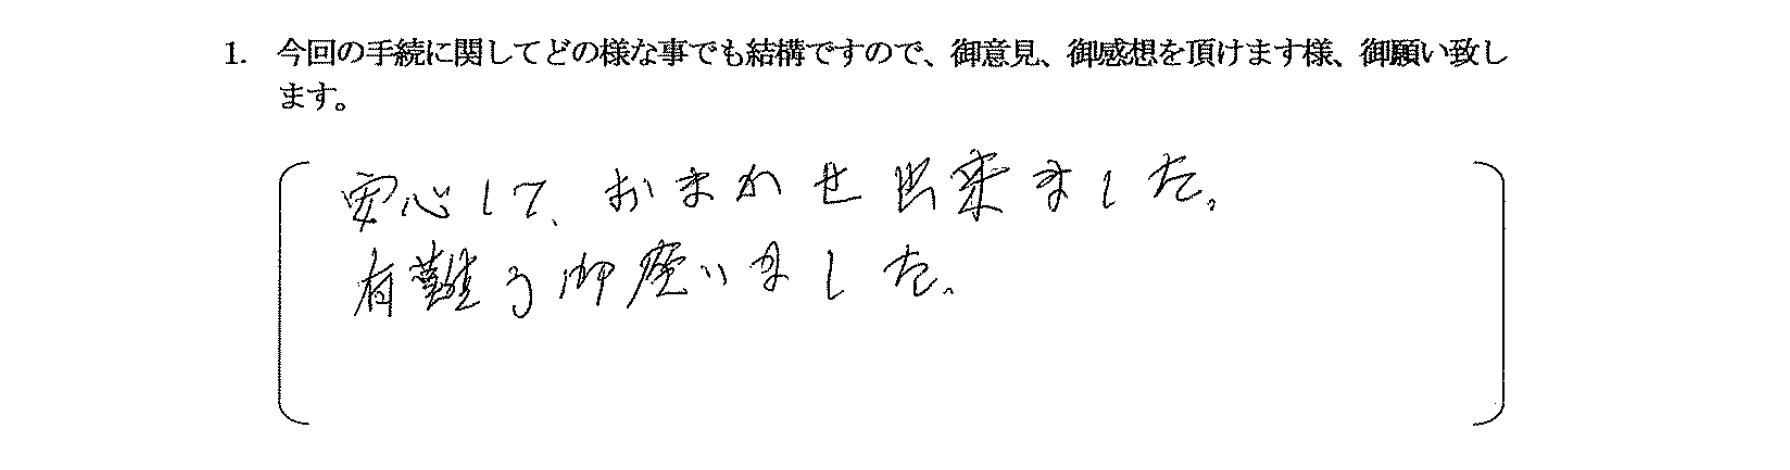 1. 今回の手続に関してどの様な事でも結構ですので、御意見、御感想を頂けます様、御願い致し
ます。
安心して、おまかせ出来ました。
有難う御座いました。